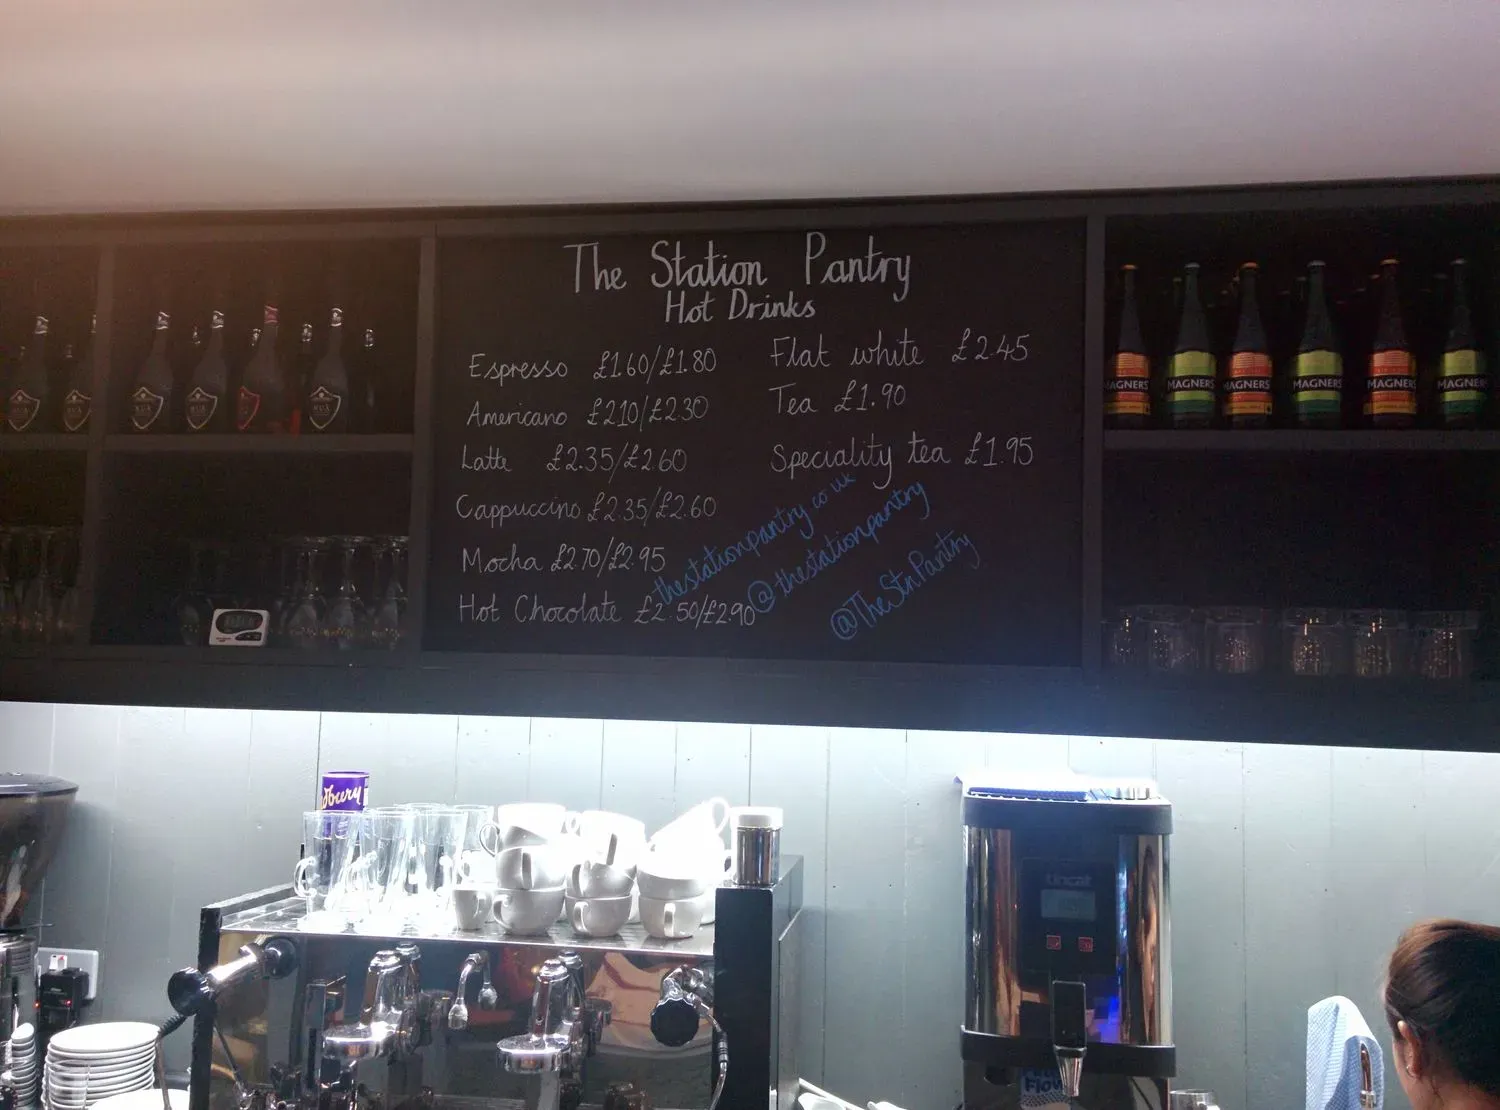 The Station Pantry
Hot Drinks
Espresso £1.60/£1.80
Americano £2.10/£2.30
Latte £2.35/£2.60
Cappuccino £2.35/£2.60
Mocha £2.70/£2.95
Hot Chocolate £2.50/£2.90
Flat white £2.45
Tea £1.90
Speciality tea £1.95
thestationpantry.co.uk
@thestationpantry
@TheStnPantry
MAGNERS
MAGNERS
MAGNERS
MAGNERS
MAGNERS
MAGNERS
Flow